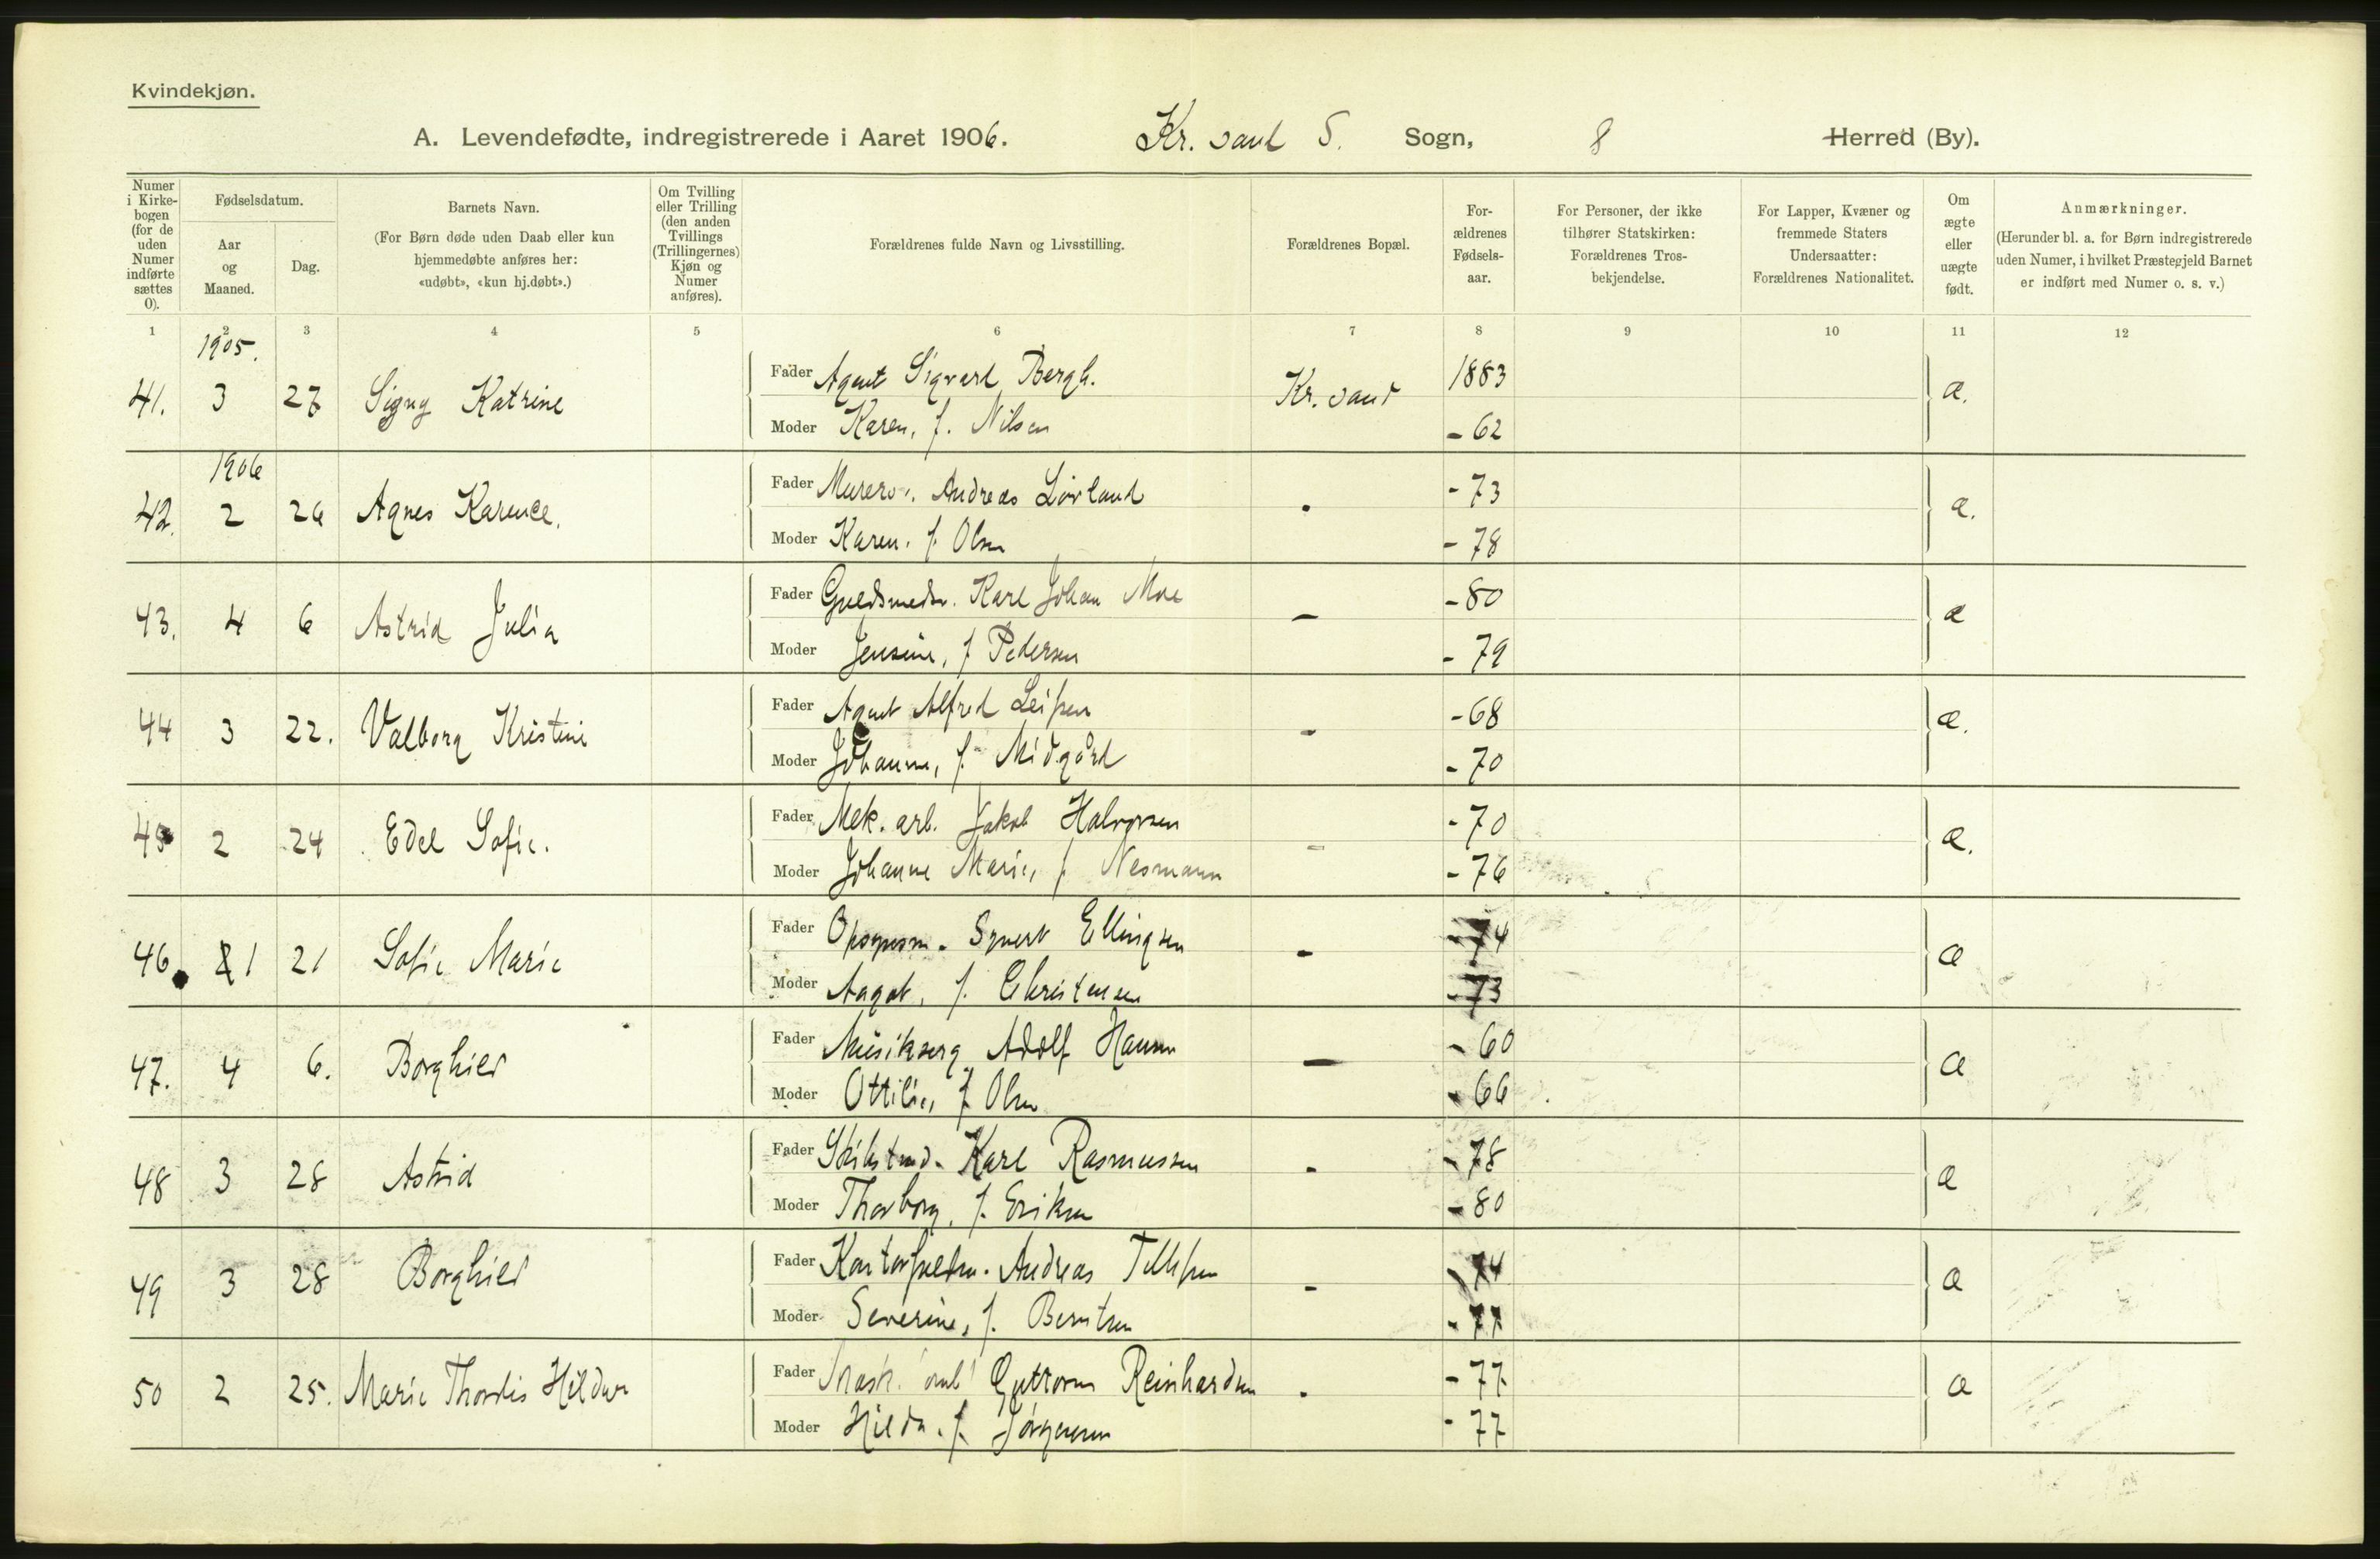 Kvindekjøn.
A. Levendefødte, indregistrerede i Aaret 1906. Kr. sand S. Sogn, 8 Herred (By).
Numer i Kirkebogen (for de uden Numer indførte sættes 0).
Fødselsdatum.
Aar og Maaned.
Dag.
Barnets Navn.
(For Børn døde uden Daab eller kun hjemmedøbte anføres her: «udøbt», «kun hj.døbt».)
Om Tvilling eller Trilling (den anden Tvillings (Trillingernes) Kjøn og Numer anføres).
Forældrenes fulde Navn og Livsstilling.
Forældrenes Bopæl.
Forældrenes Fødselsaar.
For Personer, der ikke tilhører Statskirken: Forældrenes Trosbekjendelse.
For Lapper, Kvæner og fremmede Staters Undersaatter: Forældrenes Nationalitet.
Om ægte eller uægte født.
Anmærkninger.
(Herunder bl. a. for Børn indregistrerede uden Numer, i hvilket Præstegjeld Barnet er indført med Numer o. s. v.)
1 2 3 4 5 6 7 8 9 10 11 12
1905.
41. 3 27 Signy Katrine Fader Agent Sigvard Bergh. Kr. sand 1883 æ.
Moder Karen, f. Nilsen - 62
1906
42. 2 26 Agnes Karense. Fader Murers. Andreas Lørland - 73 æ.
Moder Karen. f. Olsen - 78
43. 4 6 Astrid Julia Fader Guldsmeds. Karl Johan Moe - - 80 æ
Moder Jensine, f Pedersen - 79
44 3 22. Valborg Kristine Fader Agent Alfred Leifsen - - 68 æ.
Moder Johanne, f. Midgård - 70
45 2 24 Edel Sofie. Fader Mek. arb. Jakob Halvorsen - - 70 æ.
Moder Johanne Marie, f Nesmann - 76
46. 1 21 Sofie Marie Fader Opsynsm. Syvert Ellingsen - - 74 æ
Moder Aagot, f. Christensen - 73
47. 4 6. Borghild Fader Musikserg Adolf Hansen - - 60 æ
Moder Ottilie, f Olsen - 66
48 3 28 Astrid Fader Karl Rasmussen - - 78 æ
Moder Thorborg, f. Eriksen - 80
49 3 28 Borghild Fader Andreas Tellefsen - - 74 æ
Moder Severine, f. Berntsen - 77
50 2 25. Marie Thordis Hildur Fader Mask. Guttorm Reinhardsen - 77 æ
Moder Hilda. f. Jørgensen - 77